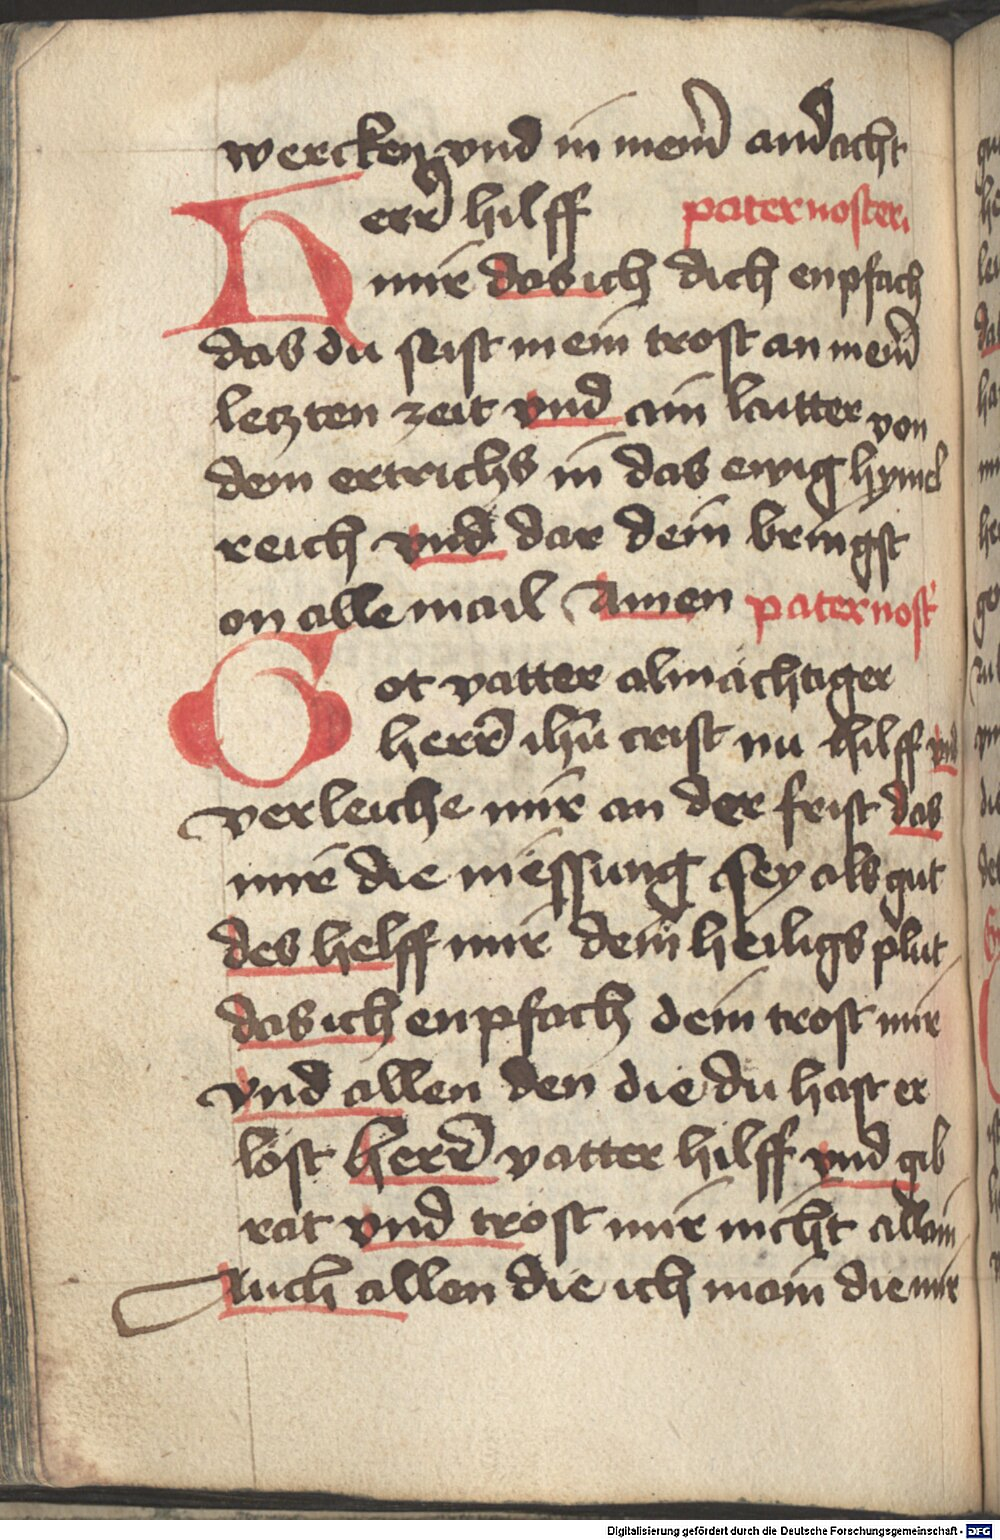 wercken vnd in mein̄ andacht
Herr̄ hilff paternoster
mir das ich dich enpfach
das du seist mein trost an mein̄
letzten zeit vnd ain lautter von
dem ertrichs in das ewig hymel
reich vnd dar dein bringst
on alle mail Amen paternost
Got vatter almächtiger
herr̄ ihū crist nu hilff vnd
verleiche mir an der frist das
mir die niessung sey als gut
des helff mir dein heiligs plut
das ich enpfach dein trost mir
vnd allen den die du hast er
löst herr̄ vatter hilff vnd gib
rat vnd tröst mir nicht allain
Auch allen die ich main die mir
Digitalisierung gefördert durch die Deutsche Forschungsgemeinschaft - DFG